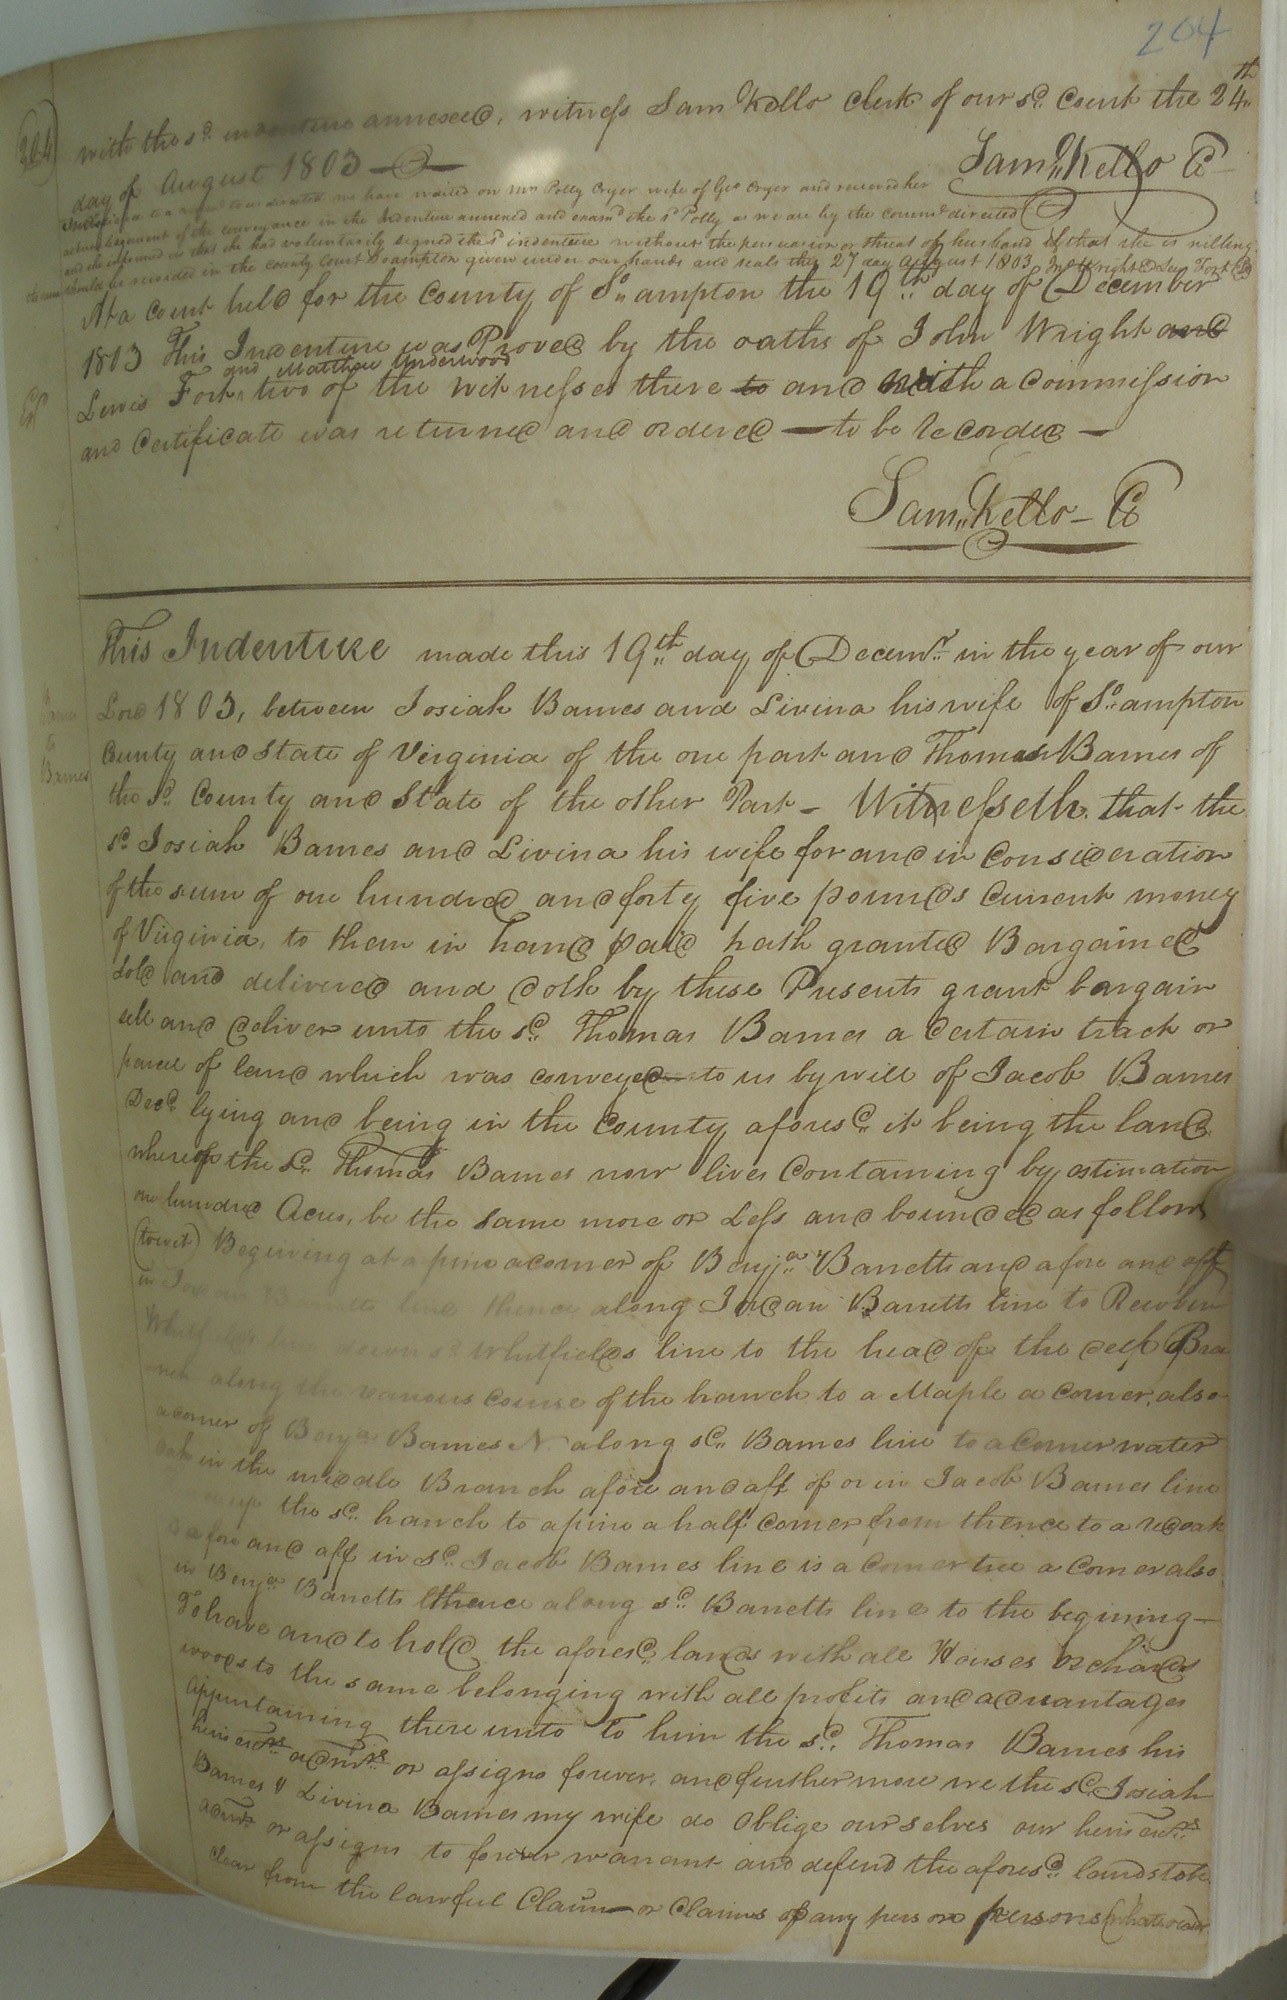 204
204
with the sd. indenture annexed, witness Sam Kello clerk of our sd. Court the 24th
day of August 1803
Saml. Kello C
we have waited on Mrs Polly Cryer wife of Geo Cryer and received her
acknowledgment of the conveyance in the Indenture annexed and examd. the sd. Polly as we are by the commn. directed
and she informed us that she had voluntarily signed the sd. indenture without the persuasion or threat of husband & that she is willing
the same should be recorded in the county Court So.ampton given under our hands and seals this 27 day August 1803 Jn. Wright Lew Fort
At a Court held for the County of So.ampton the 19th. day of December
1803 This Indenture was Proved by the oaths of John Wright and
and Matthew Underwood
Lewis Fort two of the witnesses there to and with a Commission
and Certificate was returned and ordered to be recorded
Sam. Kello C
This Indenture made this 19th. day of Decemr. in the year of our
Lord 1803, between Josiah Barnes and Livina his wife of So.ampton
County and State of Virginia of the one part and Thomas Barnes of
Barnes
to
Barnes
the sd. County and State of the other Part Witnesseth. that the
sd. Josiah Barnes and Livina his wife for and in Consideration
of the sum of one hundred and forty five pounds Current money
of Virginia, to them in hand paid hath granted Bargained
sold and delivered and doth by these Presents grant bargain
sell and deliver unto the sd. Thomas Barnes a certain track or
parcel of land which was conveyed to us by will of Jacob Barnes
Decd. lying and being in the County aforesd. it being the land
whereof the sd. Thomas Barnes now lives Containing by estimation
one hundred Acres, be the same more or Less and bounded as follows
(towit) Begining at a pine a corner of Benja. Barretts and a fore and aft
in Jordan Barretts line thence along Jordan Barretts line to Reuben
Whitfields line down sd. Whitfields line to the head of the deep Bra
nch along the various course of the branch to a Maple a corner, also
a corner of Benja Barnes N. along sd. Barnes line to a Corner water
oak in the middle Branch afore and aft of or in Jacob Barnes line
up the sd. branch to a pine a half corner from thence to a red oak
a fore and aft in sd. Jacob Barnes line is a Corner tree a Corner also
in Benja Barretts thence along sd. Barretts line to the begining
To have and to hold the aforesd. lands with all Houses Orchards
woods to the same belonging with all profits and advantages
Appurtaining there unto To him the sd. Thomas Barnes his
heirs exrs. admrs. or assigns forever, and further more we the sd. Josiah
Barnes & Livina Barnes my wife do oblige ourselves our heirs exrs.
admrs or assigns to forever warrant and defend the aforesd. lands to be
clear from the lawful Claim or Claims of any person persons whatsoever